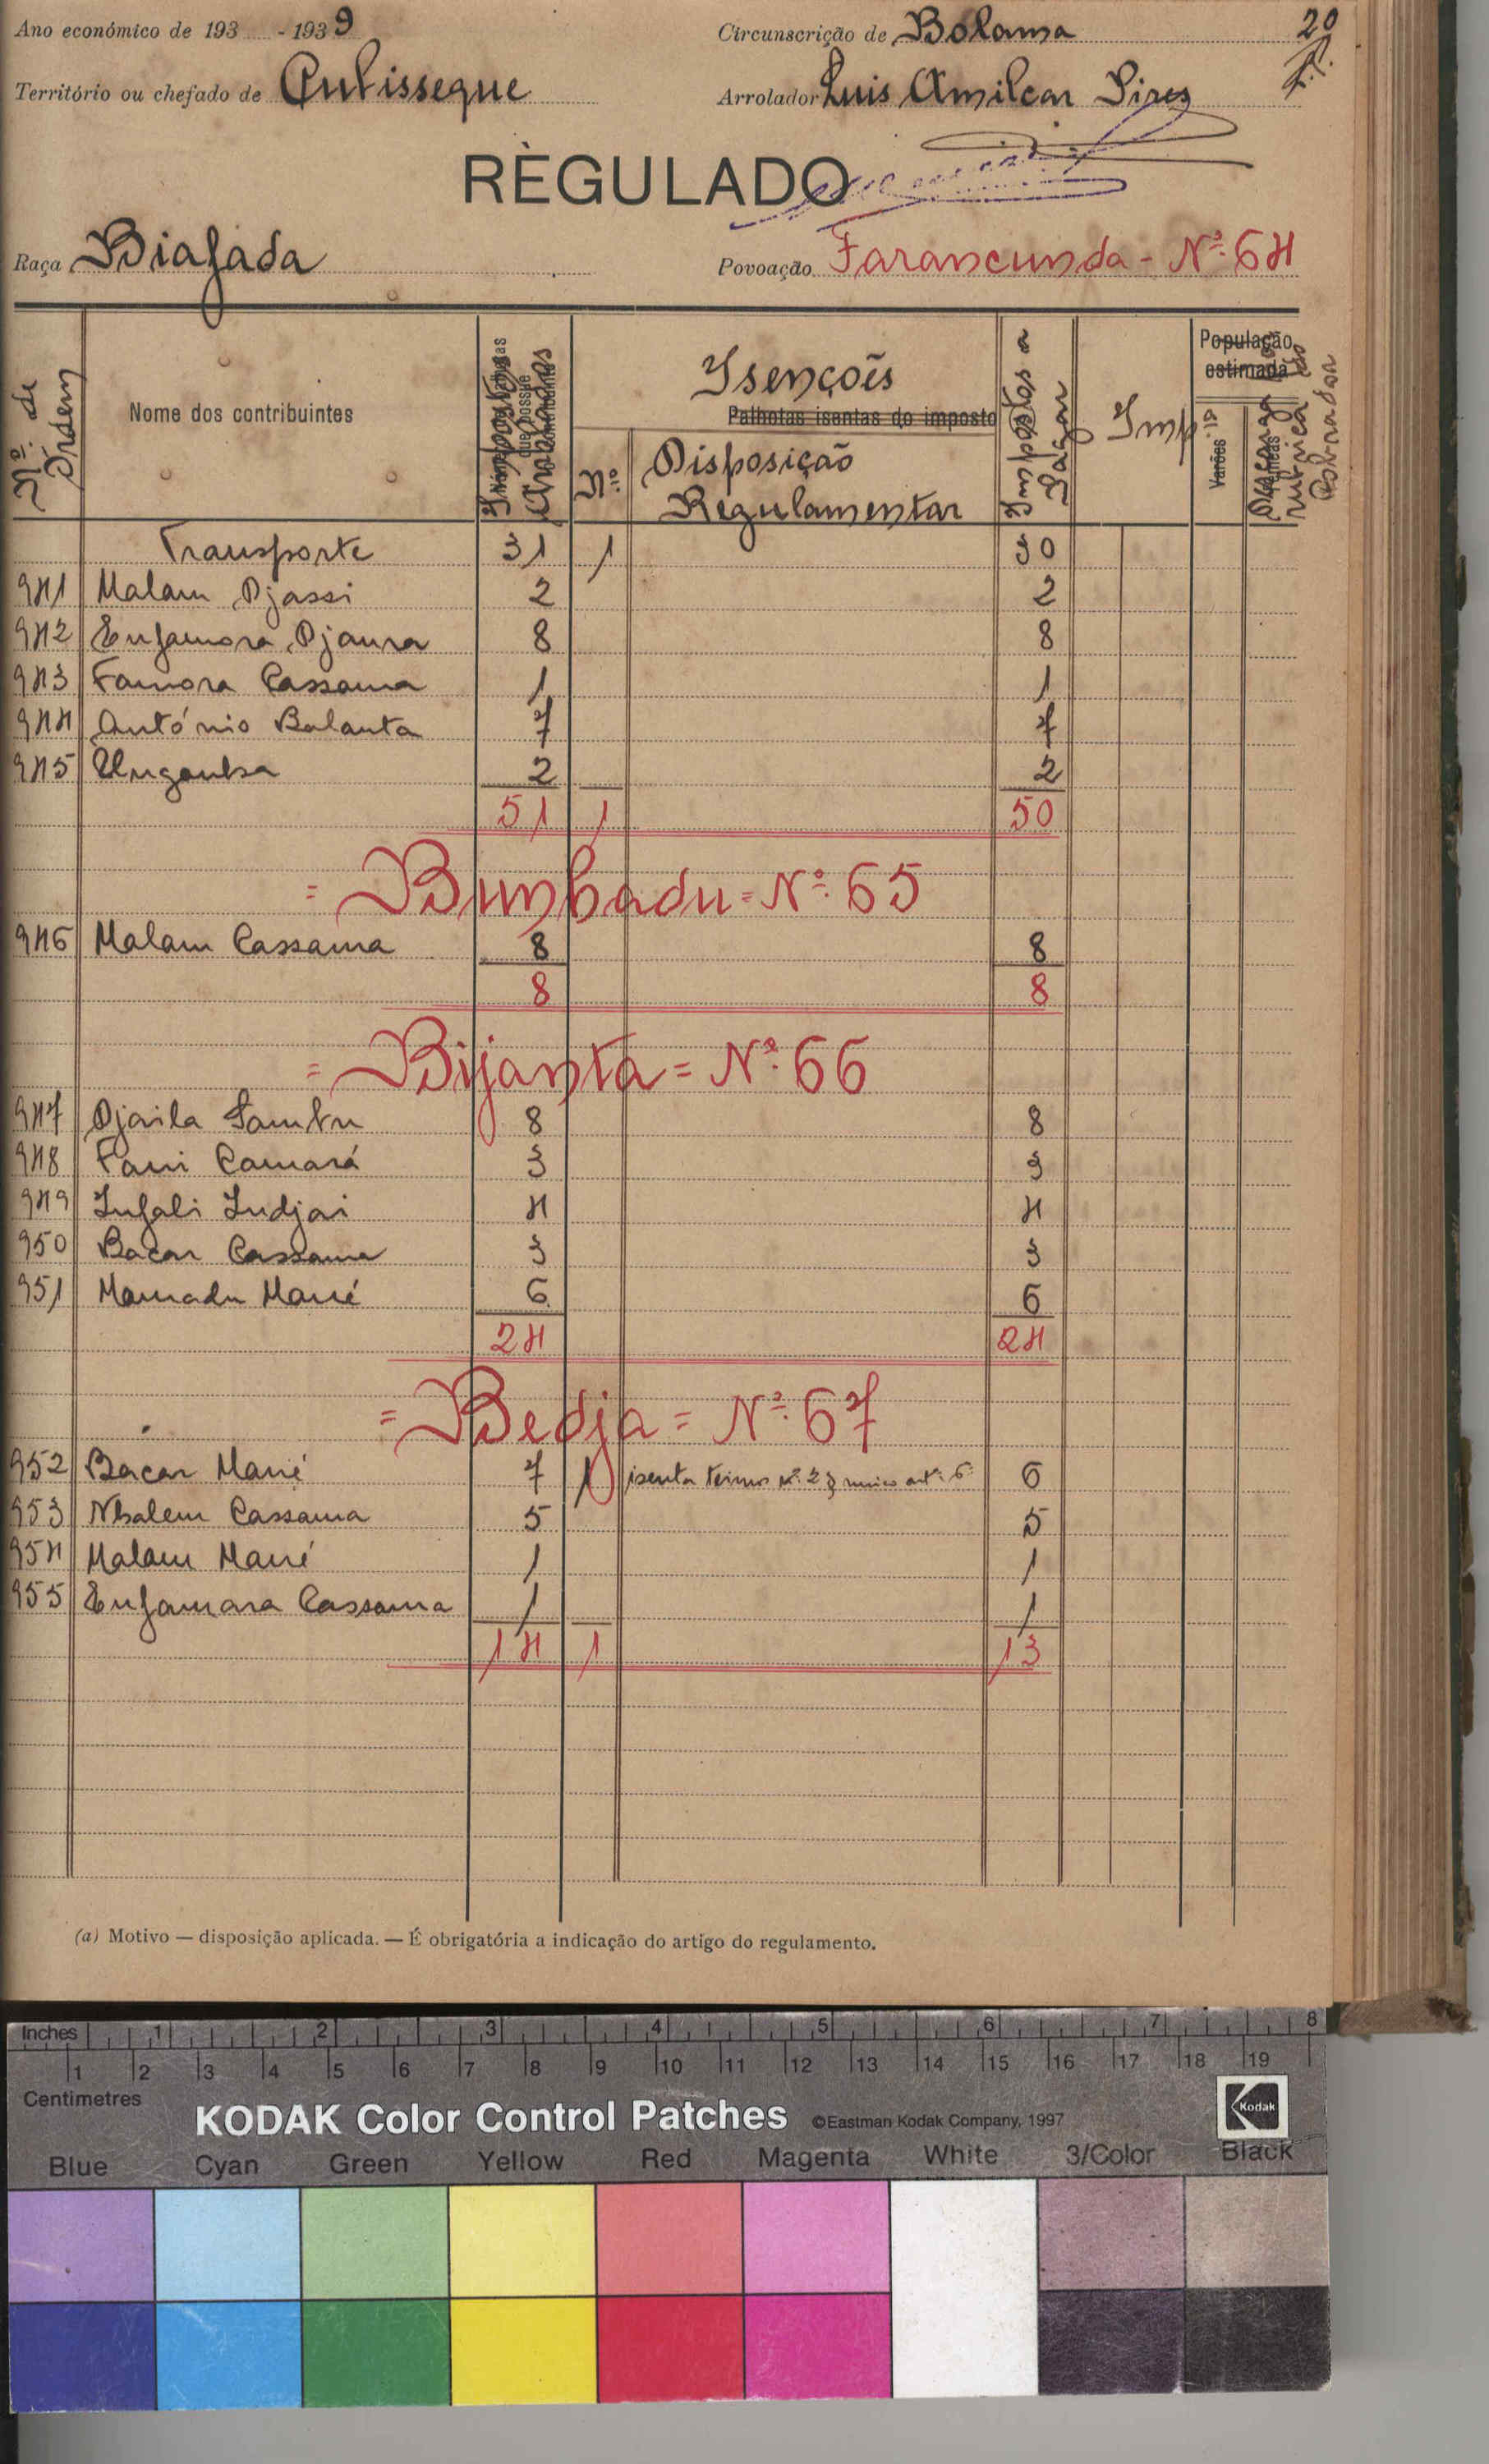 Ano económico de 193 - 1939
Circunscrição de Bolama
20
Território ou chefado de Cubisseque
Arrolador Luis Amilcar Pires
RÈGULADO
Raça Biafada
Povoação Farancunda - Nº. 64
Nº. de Ordem
Nome dos contribuintes
Impostos Arrolados
Isenções
Palhotas isentas do imposto
Nº.
Disposição Regulamentar
Impostos a Pagar
Imp.
População estimada
Varões
Transporte 31 1 30
941 Malam Djassi 2 2
942 Enfamora Djaura 8 8
943 Famora Cassama 1 1
944 António Balanta 7 7
945 Ungamba 2 2
51 1 50
= Bunhadu = Nº. 65
946 Malam Cassama 8 8
8 8
= Bijanta = Nº. 66
947 Djaila Sambu 8 8
948 Fani Camará 3 3
949 Infali Indjai 4 4
950 Bacar Cassama 3 3
951 Mamadu Mané 6 6
24 24
= Bedja = Nº. 67
952 Bacar Mané 7 1 isenta termos nº. 2 § unico artº. 6º 6
953 Nhalem Cassama 5 5
954 Malam Mané 1 1
955 Enfamara Cassama 1 1
14 1 13
(a) Motivo — disposição aplicada. — É obrigatória a indicação do artigo do regulamento.
Inches 1 2 3 4 5 6 7 8
1 2 3 4 5 6 7 8 9 10 11 12 13 14 15 16 17 18 19
Centimetres
KODAK Color Control Patches ©Eastman Kodak Company, 1997 Kodak
Blue Cyan Green Yellow Red Magenta White 3/Color Black